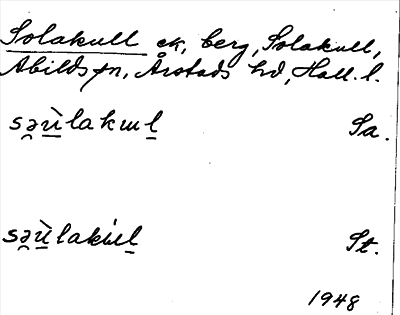 Solakull ek, berg, Solakull,
Abilds sn, Årstads hd, Hall. l.
sə̯ù̱lakɯḻ Sa.
sə̯ù̱lakɯ́ḻ St.
1948